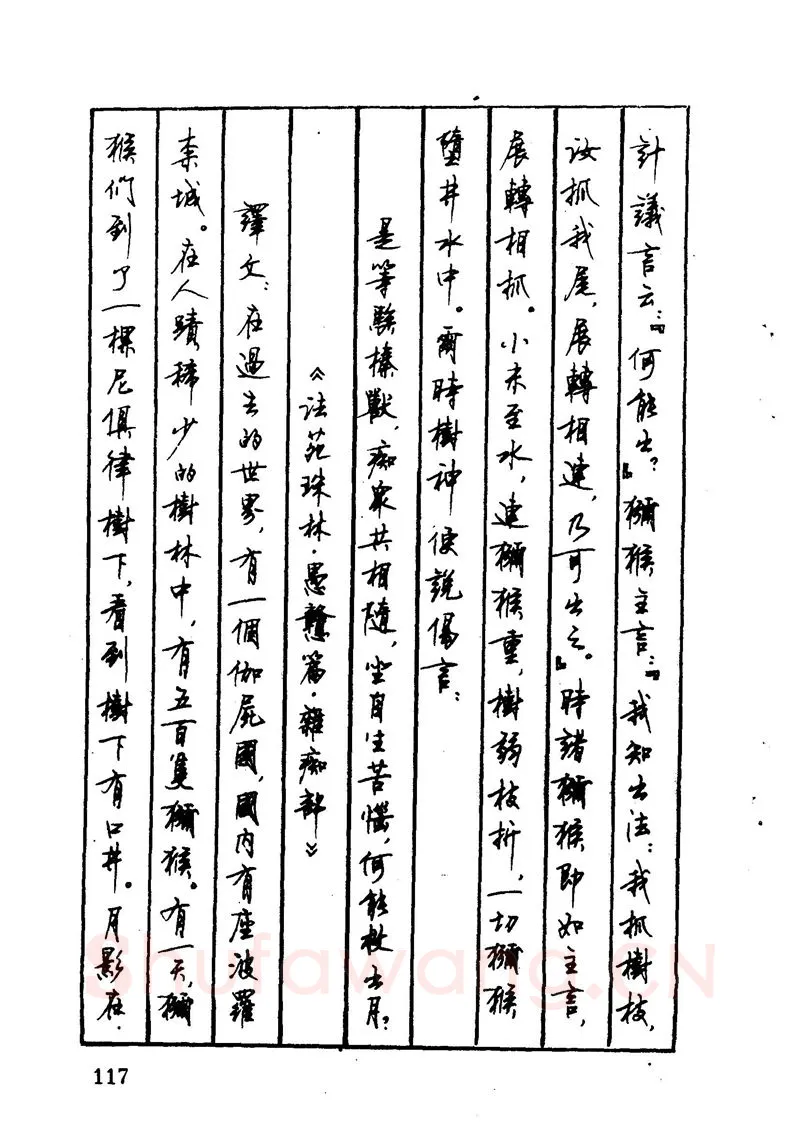 計議言云:『何能出?』獼猴主言:『我知出法:我抓樹枝,
汝抓我尾,展轉相連,乃可出之。』時諸獼猴即如主言,
展轉相抓。小未至水,連獼猴重,樹弱枝折,一切獼猴
墮井水中。爾時樹神便說偈言:
是等騃榛獸,痴衆共相隨,坐自生苦惱,何能救出月?
《法苑珠林·愚戇篇·雜痴部》
譯文:在過去的世界,有一個伽屍國,國內有座波羅
柰城。在人蹟稀少的樹林中,有五百隻獼猴。有一天,獼
猴們到了一棵尼俱律樹下,看到樹下有口井。月影在
117
Shufawang.CN